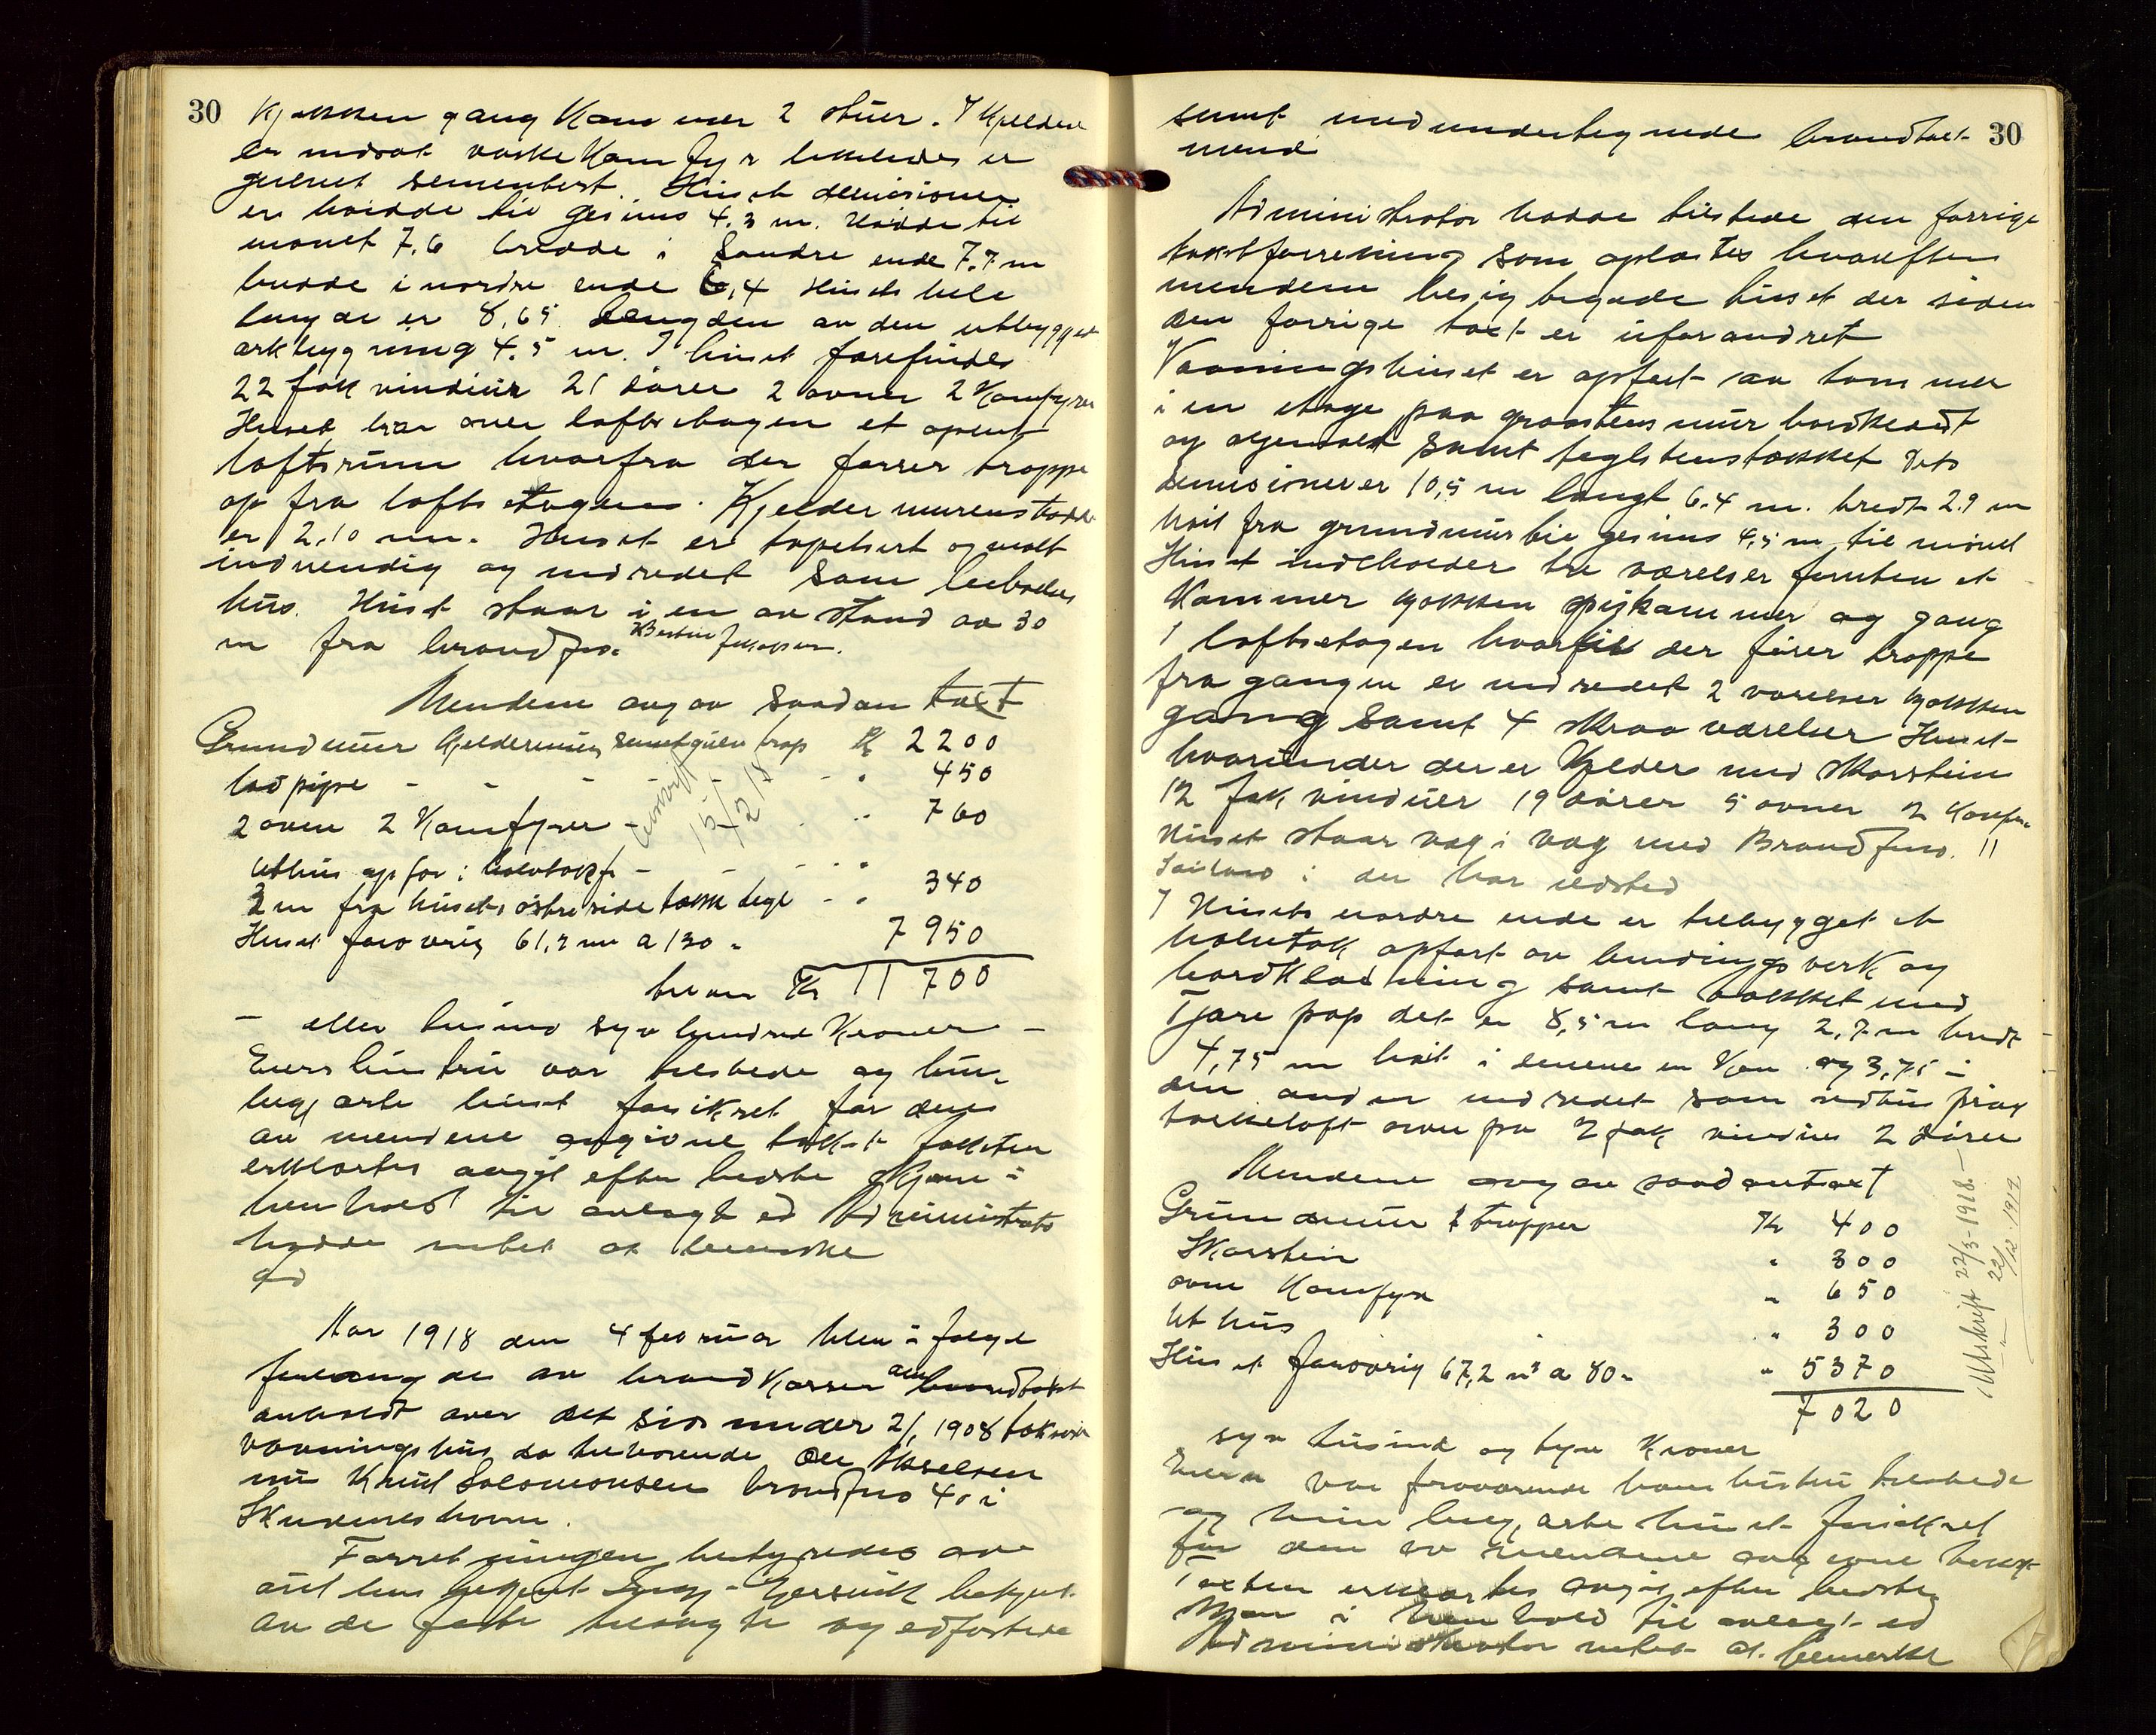 30
Kjøkken gang Kammer 2 stuer. I Kjelderen
er indsat vaske Kamfyr likeledes er
gulvet sementert. Huset demisioner
er høidde til gesims 4,3 m. Høidde til
mønet 7,6 bredde i Søndre ende 7,7 m
bredde i nordre ende 6,4 Husets hele
længde er 8,65 Længden av den utbygget
arkbygning 4,5 m. I huset forefindes
22 fak vinduer 21 dører 2 ovner 2 Kamfyrer
Huset har over loftsetagen et opent
loftsrum hvorfra der fører trappe
op fra lofts etagen. Kjelder murens høide
er 2,10 m. Huset er tapetsert og malt
indvendig og indredet som beboelses
hus. Huset staar i en avstand av 30
m fra brandfno.
Mendene avgav saadan taxt
Grundmur Kjeldermur sementgulv trap Kr 2200
lodpipe - - - " 450
2 ovne 2 Kamfyrer - - " 760
Uthus opfør i halvtakf - - - "
2 m fra husets østre side takk tegl - " 340
Huset forøvrig 61,2 m a 130 - 7950
til sam Kr 11700
- elleve tusind syv hundred Kroner -
Utskrift 15/2 18
Eiers hustru var tilstede og hun
begjærte huset forsikret for den
av mendene avgivne takst taksten
erklærtes avgit efter bedste skjøn i
henhold til avlagt ed Administrator
hadde intet at bemerke
Aar 1918 den 4 februar blev i følge
forlangende av brandkassen den brandtakst
anholdt over det sids under 2/1 1908 takserte
vaaningshus da tilhørende Ole Akselsen
nu Knut Salomonsen brandfno 40 i
Skudeneshavn.
Forretningen bestyredes av
av de faste tilsagte og edfæstede
30
samt medundertegnede brandtakst-
mend
Administrator hadde tilstede den forrige
takstforretning som oplæstes hvorefter
mendene besigtigede huset der siden
den forrige taxt er uforandret
Vaaningshuset er opført av tømmer
i en etage paa graastens mur bordklædt
og oljemalt samt teglstenstækket Dets
demisioner er 10,5 m langt 6,4 m. bredt 2,9 m
høit fra grundmur til gesims 4,5 m til mønet
Huset indeholder tre værelser foruten et
Kammer kjøkken spiskammer og gang
I loftsetagen hvortil der fører trappe
fra gangen er indredet 2 værelser kjøkken
gang samt 4 skraa værelser Huset
hvorunder der er Kjelder med skorstein
12 fak vinduer 19 dører 5 ovner 2 Kamfyr
Huset staar væg i væg med Brandfno. 11
der har ildsted
I Husets nordre ende er tilbygget et
halvtak opført av bindingsverk og
bordklædning samt tækket med
Tjære pap det er 8,5 m lang 2,7 m bredt
4,75 m høit i denene en Kan og 3,75 i
den anden indredet som
tørkeloft oven paa 2 fak vinduer 2 dører
Mendene avgav saadan taxt
Grundmur & trapper Kr 400
Skorstein " 300
ovne Kamfyr " 650
Uthus " 300
Huset forøvrig 67,2 m² a 80 - " 5370
7020
Utskrift 22/3-1918.-
22/12 1919
syv tusind og tyve Kroner
Eieren var fraværende hans hustru tilstede
og hun begjærte huset forsikret
for den av mendene avgivne takst
Taxten erklærtes avgit efter bedste
skjøn i henhold til avlagt ed
Administrator intet at bemerke